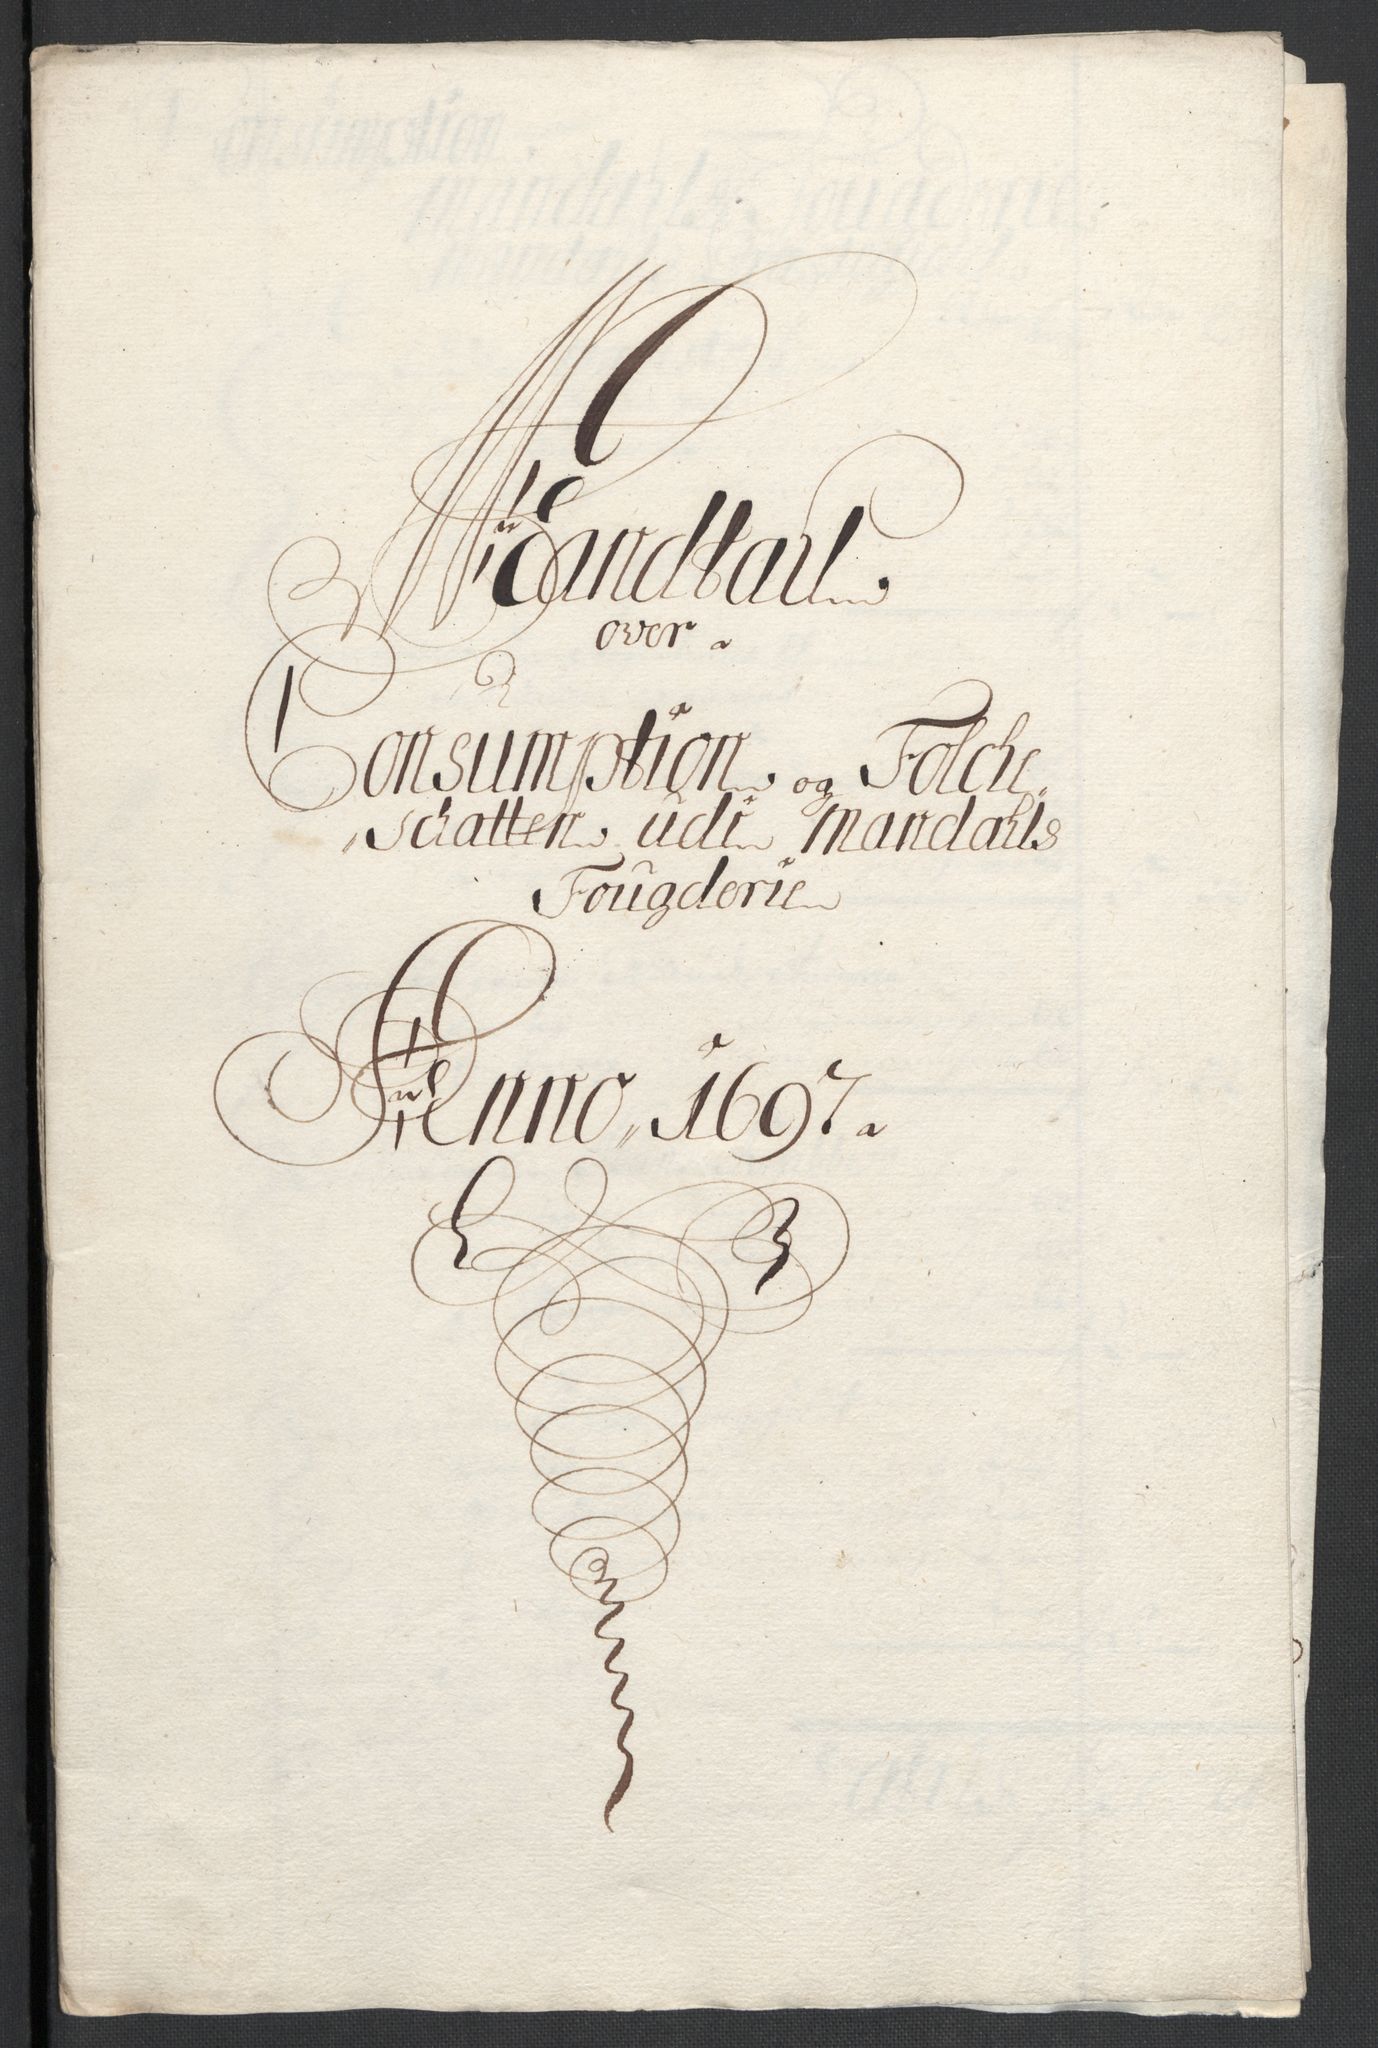 Mandtal
over
Consumption og Folche
Schatten udi Mandahls
Fougderie
Anno 1697